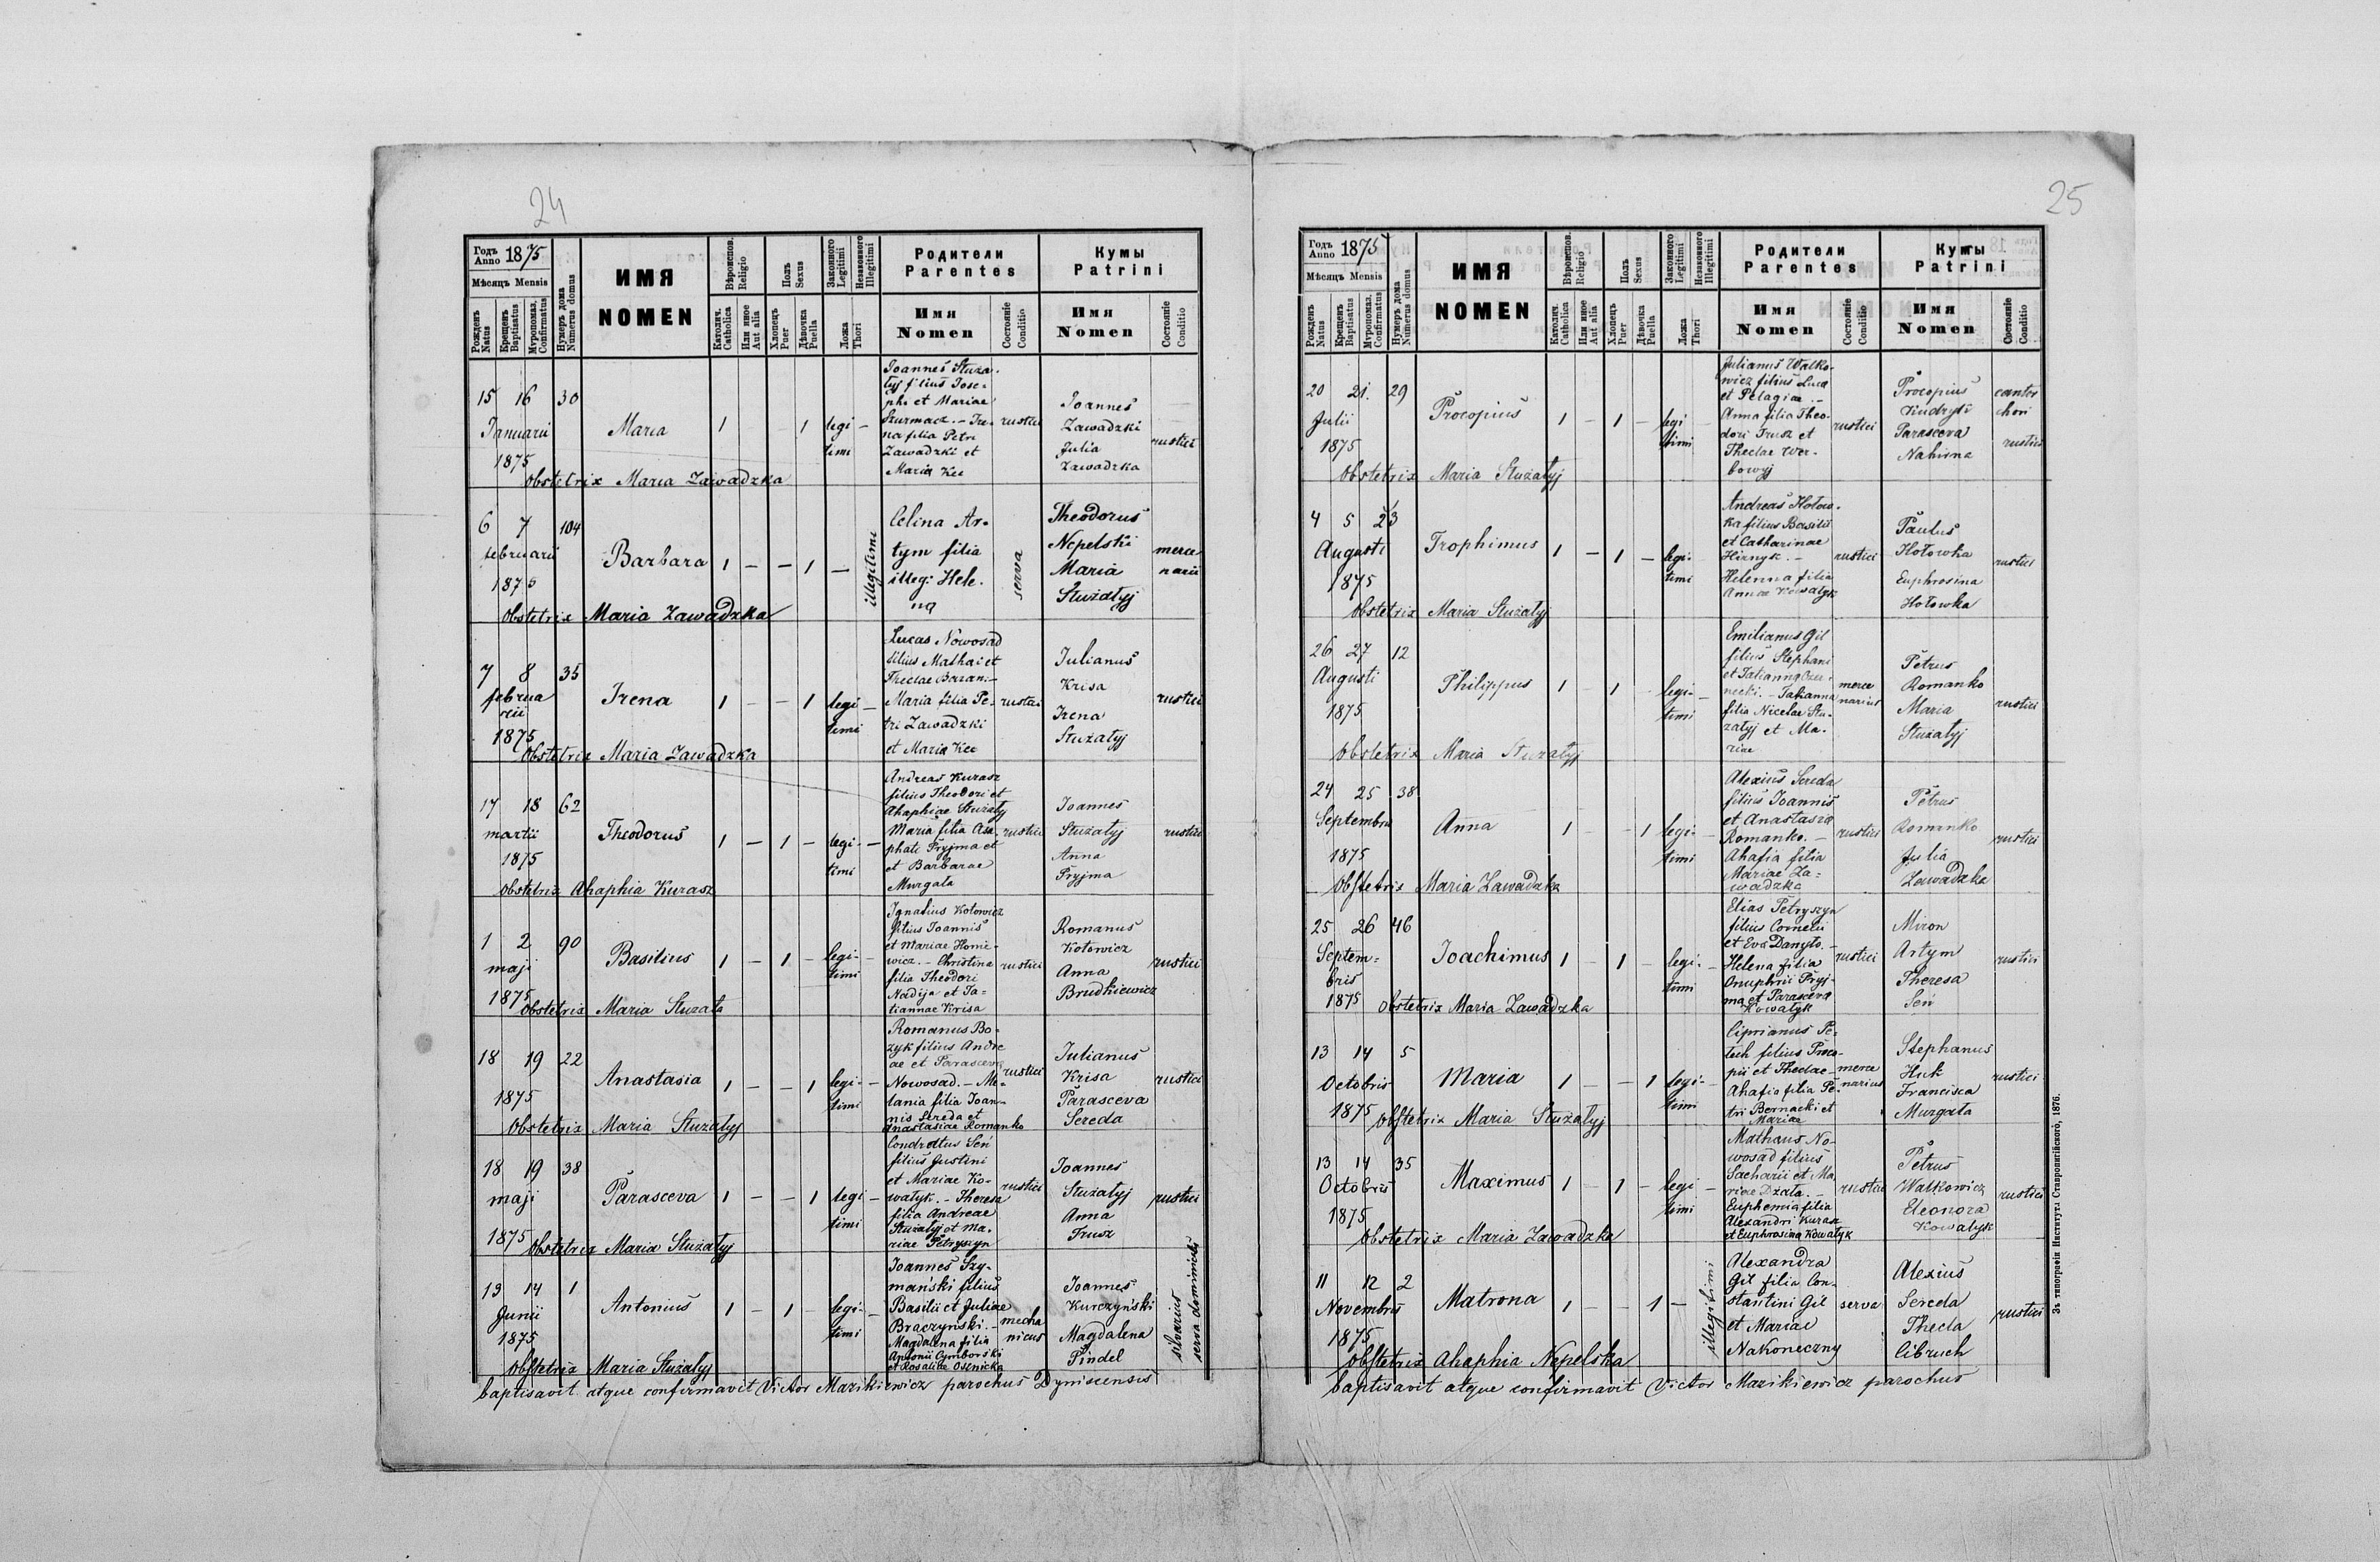 24
Годъ Anno 1875
Мѣсяцъ Mensis
Рожденъ Natus
Крещенъ Baptisatus
Мѵропомаз. Confirmatus
Нумеръ дома Numerus domus
ИМЯ NOMEN
Вѣроиспов. Religio
Католич. Catholica
Или иное Aut alia
Полъ Sexus
Хлопець Puer
Дѣвочка Puella
Законного Legitimi
Незаконного Illegitimi
Ложа Thori
Родители Parentes
Имя Nomen
Состояніе Conditio
Кумы Patrini
Имя Nomen
Состояніе Conditio
15 16 30
Januarii
1875
Maria 1 1 legi- timi
Joannes Stuza-
łyj filius Jose-
phi et Mariae
Szurmacz. - Ire-
na filia Petri
Zawadzki et
Maria Kee
rustici
Joannes
Zawadzki
Julia
Zawadzka
rustici
Obstetrix Maria Zawadzka
6 7 104
februarii
1875
Barbara 1 - - 1 - illegitimi
Celina Ar-
tym filia
illeg: Hele-
na
serva
Theodorus
Nepelski
Maria
Stuzałyj
merce
narii
Obstetrix Maria Zawadzka
7 8 35
februa
rii
1875
Irena 1 - - 1 legi- timi
Lucas Nowosad
filius Mathai et
Theclae Baran. -
Maria filia Pe-
tri Zawadzki
et Maria Kee
rustici
Julianus
Krisa
Irena
Stuzałyj
rustici
Obstetrix Maria Zawadzka
17 18 62
martii
1875
Theodorus 1 - 1 - legi- timi
Andreas Kurasz
filius Theodori et
Ahaphiae Stuzałyj
Maria filia Asa-
phati Pryjma et
et Barbarae
Murgała
rustici
Joannes
Stuzałyj
Anna
Pryjma
rustici
Obstetrix Ahaphia Kurasz
1 2 90
maji
1875
Basilius 1 - 1 - legi- timi
Ignatius Kotowicz
filius Joannis
et Mariae Homi-
wicz. - Christina
filia Theodori
Nadija et Ta-
tiannae Krisa
rustici
Romanus
Kotowicz
Anna
Brudkiewicz
rustici
Obstetrix Maria Stuzała
18 19 22
1875
Anastasia 1 - - 1 legi- timi
Romanus Bo-
zyk filius Andre
ae et Parasceva
Nowosad. - Me-
lania filia Joan-
nis Sereda et
Anastasiae Romanko
rustici
Julianus
Krisa
Parasceva
Sereda
rustici
Obstetrix Maria Stuzałyj
18 19 38
maji
1875
Parasceva 1 - - 1 legi- timi
Condratus Seń
filius Justini
et Mariae Ko-
wałyk. - Theresa
filia Andreae
Stuzałyj et Ma-
riae Petryszyn
rustici
Joannes
Stuzałyj
Anna
Trusz
rustici
Obstetrix Maria Stuzałyj
13 14 1
Junii
1875
Antonius 1 - 1 - legi- timi
Joannes Szy-
mański filius
Basilii et Juliae
Braczyński. -
Magdalena filia
Antonii Cymborski
et Rosaliae Osznicka
mecha
nicus
Joannes
Kurczyński
Magdalena
Pindel
silvarius
serva dominicalis
Obstetrix Maria Stuzałyj
baptisavit atque confirmavit Victor Mazikiewicz parochus Dyniscensis
25
Годъ Anno 1875
Мѣсяцъ Mensis
Рожденъ Natus
Крещенъ Baptisatus
Мѵропомаз. Confirmatus
Нумеръ дома Numerus domus
ИМЯ NOMEN
Вѣроиспов. Religio
Католич. Catholica
Или иное Aut alia
Полъ Sexus
Хлопець Puer
Дѣвочка Puella
Законного Legitimi
Незаконного Illegitimi
Ложа Thori
Родители Parentes
Имя Nomen
Состояніе Conditio
Кумы Patrini
Имя Nomen
Состояніе Conditio
20 21. 29
Julii
1875
Procopius 1 - 1 - legi timi
Julianus Walko-
wicz filius Luca
et Pelagiae. -
Anna filia Theo-
dori Trusz et
Theclae Wer-
bowyj
rustici
Procopius
Parasceva
Nahirna
cantor
chori
rustici
Obstetrix Maria Stuzałyj
4 5 23
Augusti
1875
Trophimus 1 - 1 - legi- timi
Andreas Hołow-
ka filius Basilii
et Catharinae
Hirnyk. -
Helenna filia
Annae Kowałyk
rustici
Paulus
Hołowka
Euphrosina
Hołowka
rustici
Obstetrix Maria Stuzałyj
26 27 12
Augusti
1875
Philippus 1 - 1 legi- timi
Emilianus Gil
filius Stephani
et Tatianna Czer-
necki. - Tatianna
filia Nicelae Stu-
załyj et Ma-
riae
merce
narius
Petrus
Romanko
Maria
Stuzałyj
rustici
Obstetrix Maria Stuzałyj
24 25 38
Septembris
1875
Anna 1 - - 1 legi- timi
Alexius Sereda
filius Joannis
et Anastasia
Romanko. -
Ahafia filia
Mariae Za=
wadzka
rustici
Petrus
Romanko
Julia
Zawadzka
rustici
Obstetrix Maria Zawadzka
25 26 46
Septem=
bris
1875
Joachimus 1 - 1 - legi- timi
Elias Petryszyn
filius Cornelii
et Eva Danyło. -
Helena filia
Onuphrii Pryj-
ma et Parasceva
Kowałyk
rustici
Miron
Artym
Theresa
Seń
rustici
Obstetrix Maria Zawadzka
13 14 5
Octobris
1875
Maria 1 - - 1 legi- timi
Ciprianus Pe-
tech filius Proco-
pii et Theclae -
Ahafia filia Pe-
tri Bernacki et
Mariae
merce
narius
Stephanus
Huk
Francisca
Murgała
rustici
Obstetrix Maria Stuzałyj
13 14 35
Octobris
1875
Maximus 1 - 1 - legi timi
Mathaus No-
wosad filius
Sacharii et Ma
riae Dżała. -
Euphemia filia
Alexandri Kurasz
et Euphrosina Kowałyk
rustici
Petrus
Walkowicz
Eleonora
Kowałyk
rustici
Obstetrix Maria Zawadzka
11 12 2
Novembris
1875
Matrona 1 - - 1 - illegitimi
Alexandra
Gil filia Con-
stantini Gil
et Mariae
Nakoneczny
serva
Alexius
Sereda
Thecla
Cibruch
rustici
Obstetrix Ahaphia Nepelska
baptisavit atque confirmavit Victor Mazikiewicz parochus
Зъ типографіи Института Ставропигійского, 1876.